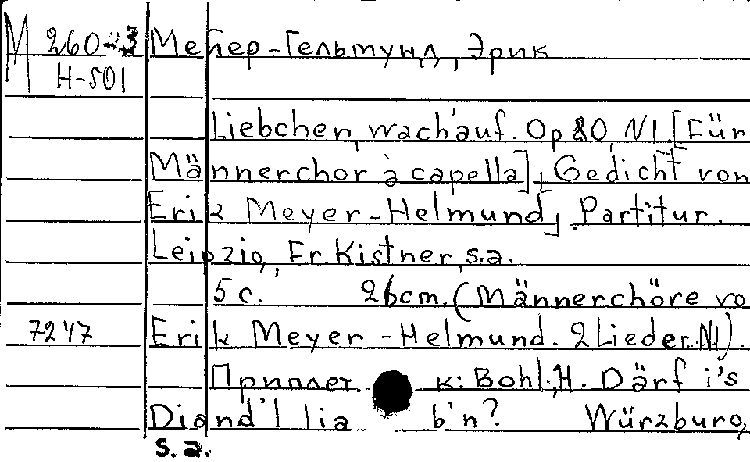 M 26023 Мейер-Гельмунд, Эрик
H-501
Liebchen, wach auf. Op 80, N1. [Für
Männerchor à capella], Gedicht von
Erik Meyer-Helmund, Partitur.
Leipzig, Fr. Kistner, s.a.
5 с. 26cm. (Männerchöre vo
7247 Erik Meyer-Helmund. 2 Lieder. N1).
Приплет к: Bohl, H. Därf i's
Diand'l lia b'n? Würzburg,
s.a.